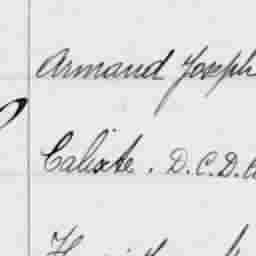 Armand Joseph
Calixte. D.C.D.